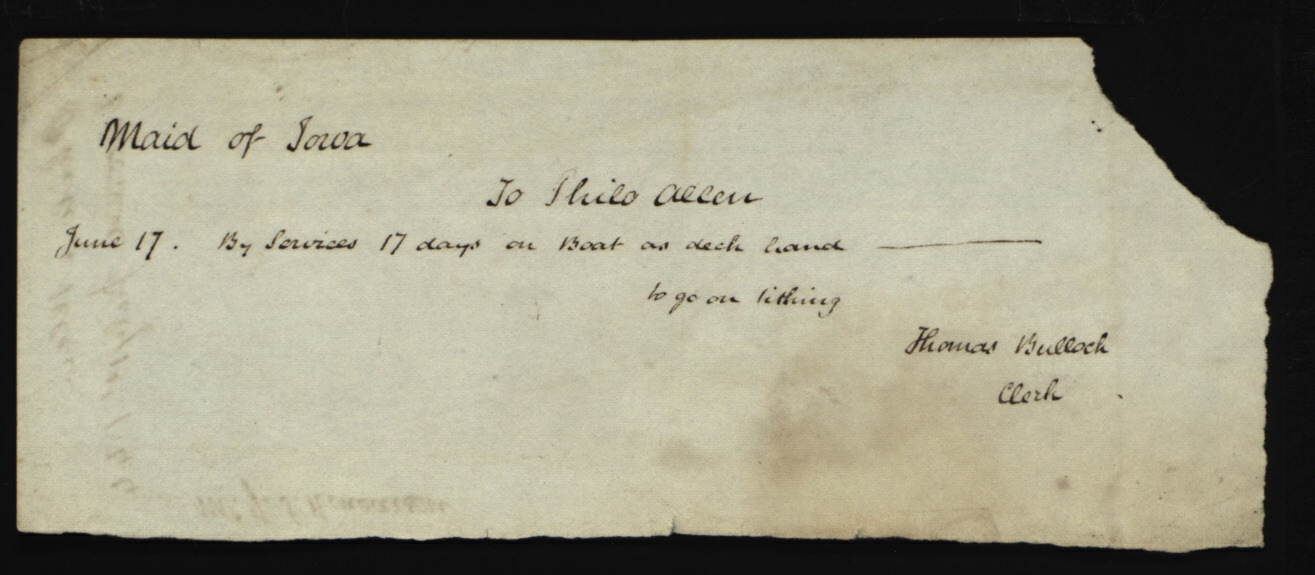 Maid of Iowa
To Philo Allen
June 17. By Services 17 days on Boat as deck hand
to go on tithing
Thomas Bullock
Clerk